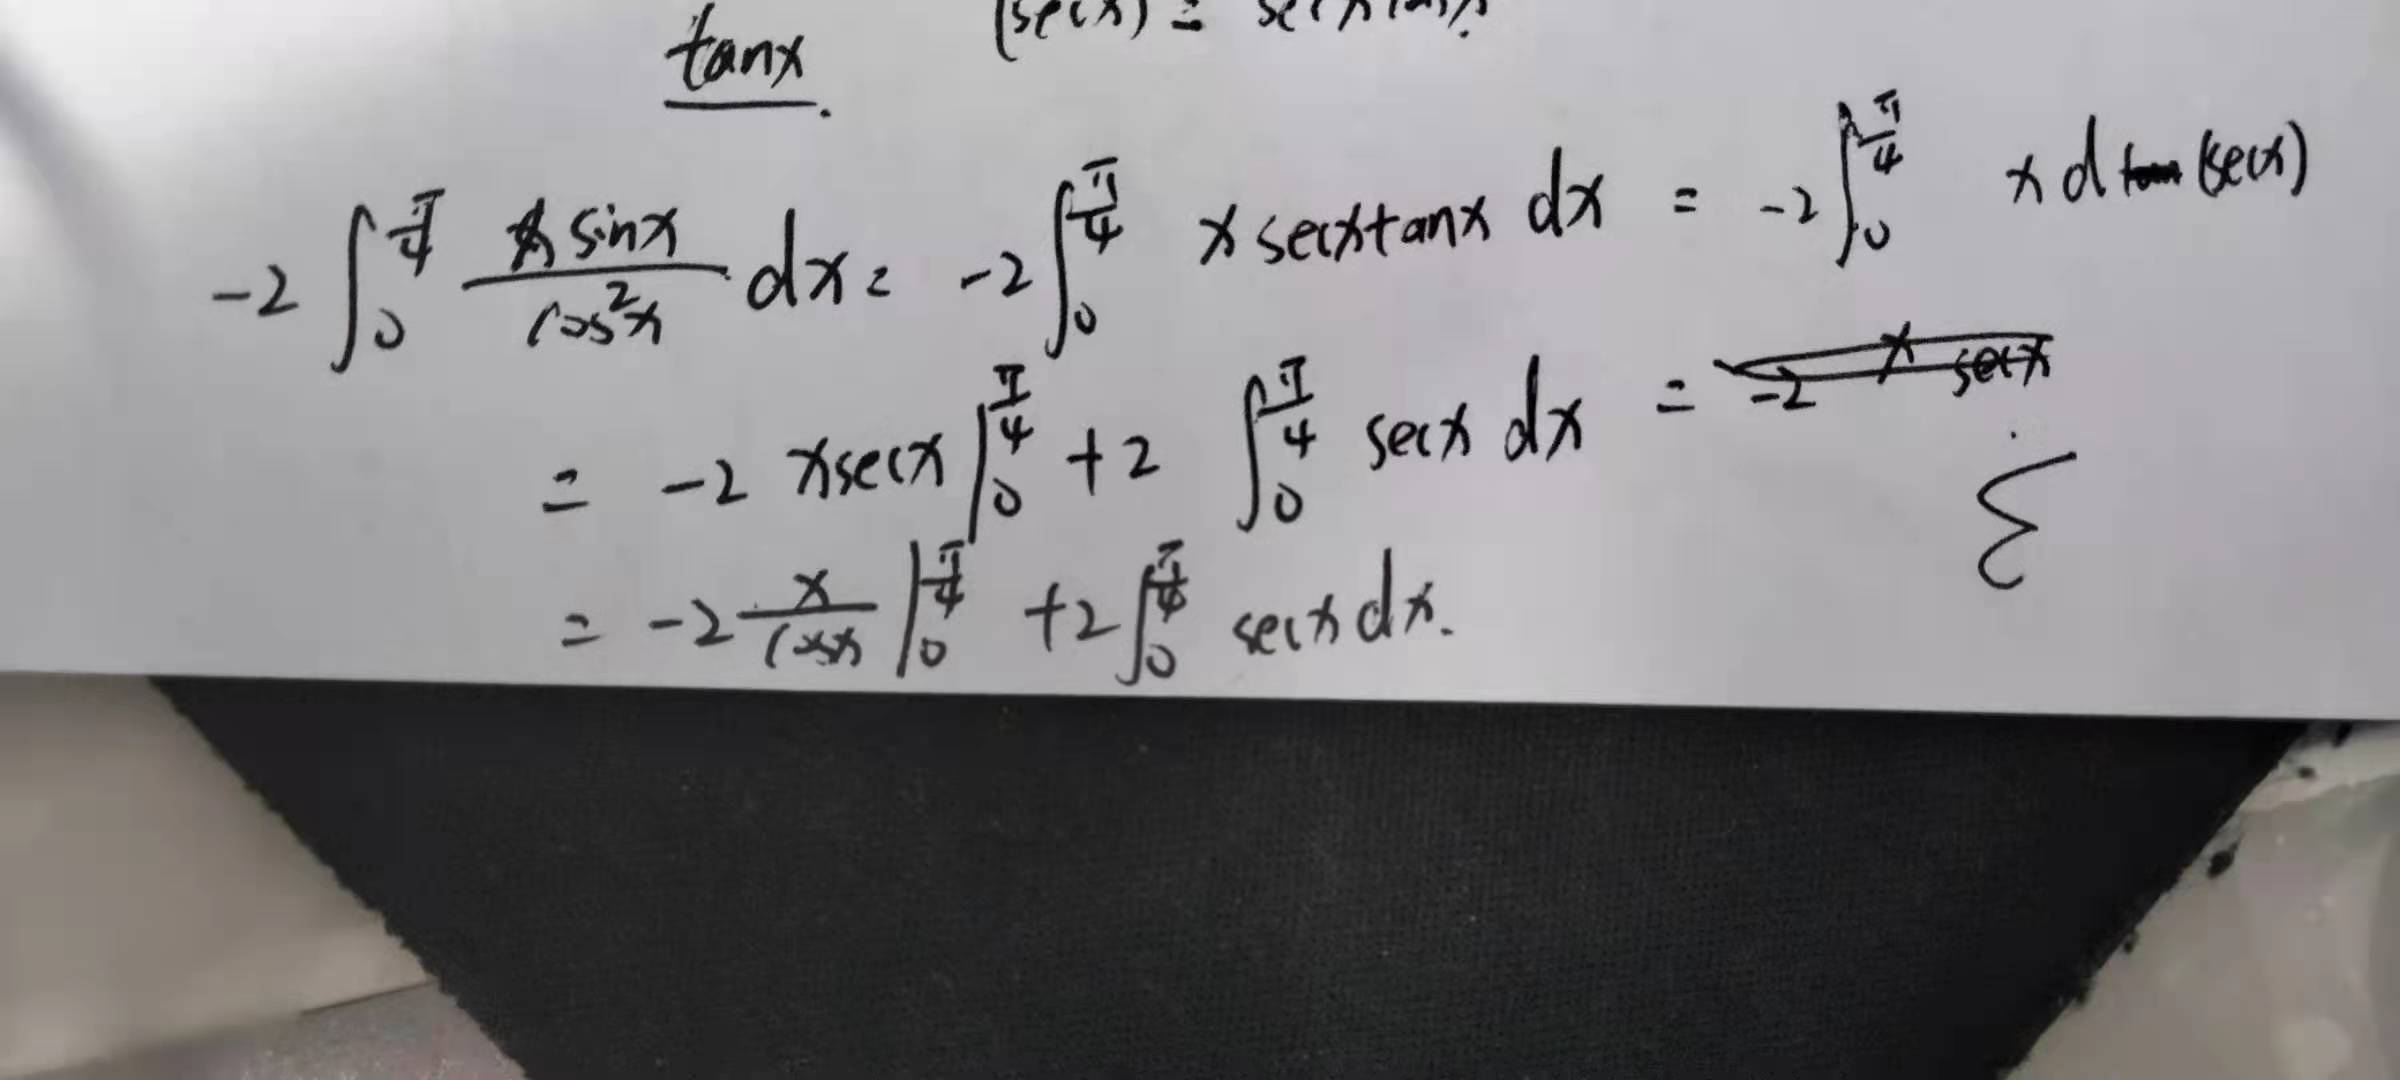 tanx. (secx) = secxtanx.
-2 ∫₀^{π/4} \frac{x sinx}{cos²x} dx = -2 ∫₀^{π/4} x secxtanx dx = -2 ∫₀^{π/4} x d (secx)
= -2 xsecx |₀^{π/4} + 2 ∫₀^{π/4} secx dx = -2 x secx
= -2 \frac{x}{cosx} |₀^{π/4} + 2 ∫₀^{π/4} secx dx.